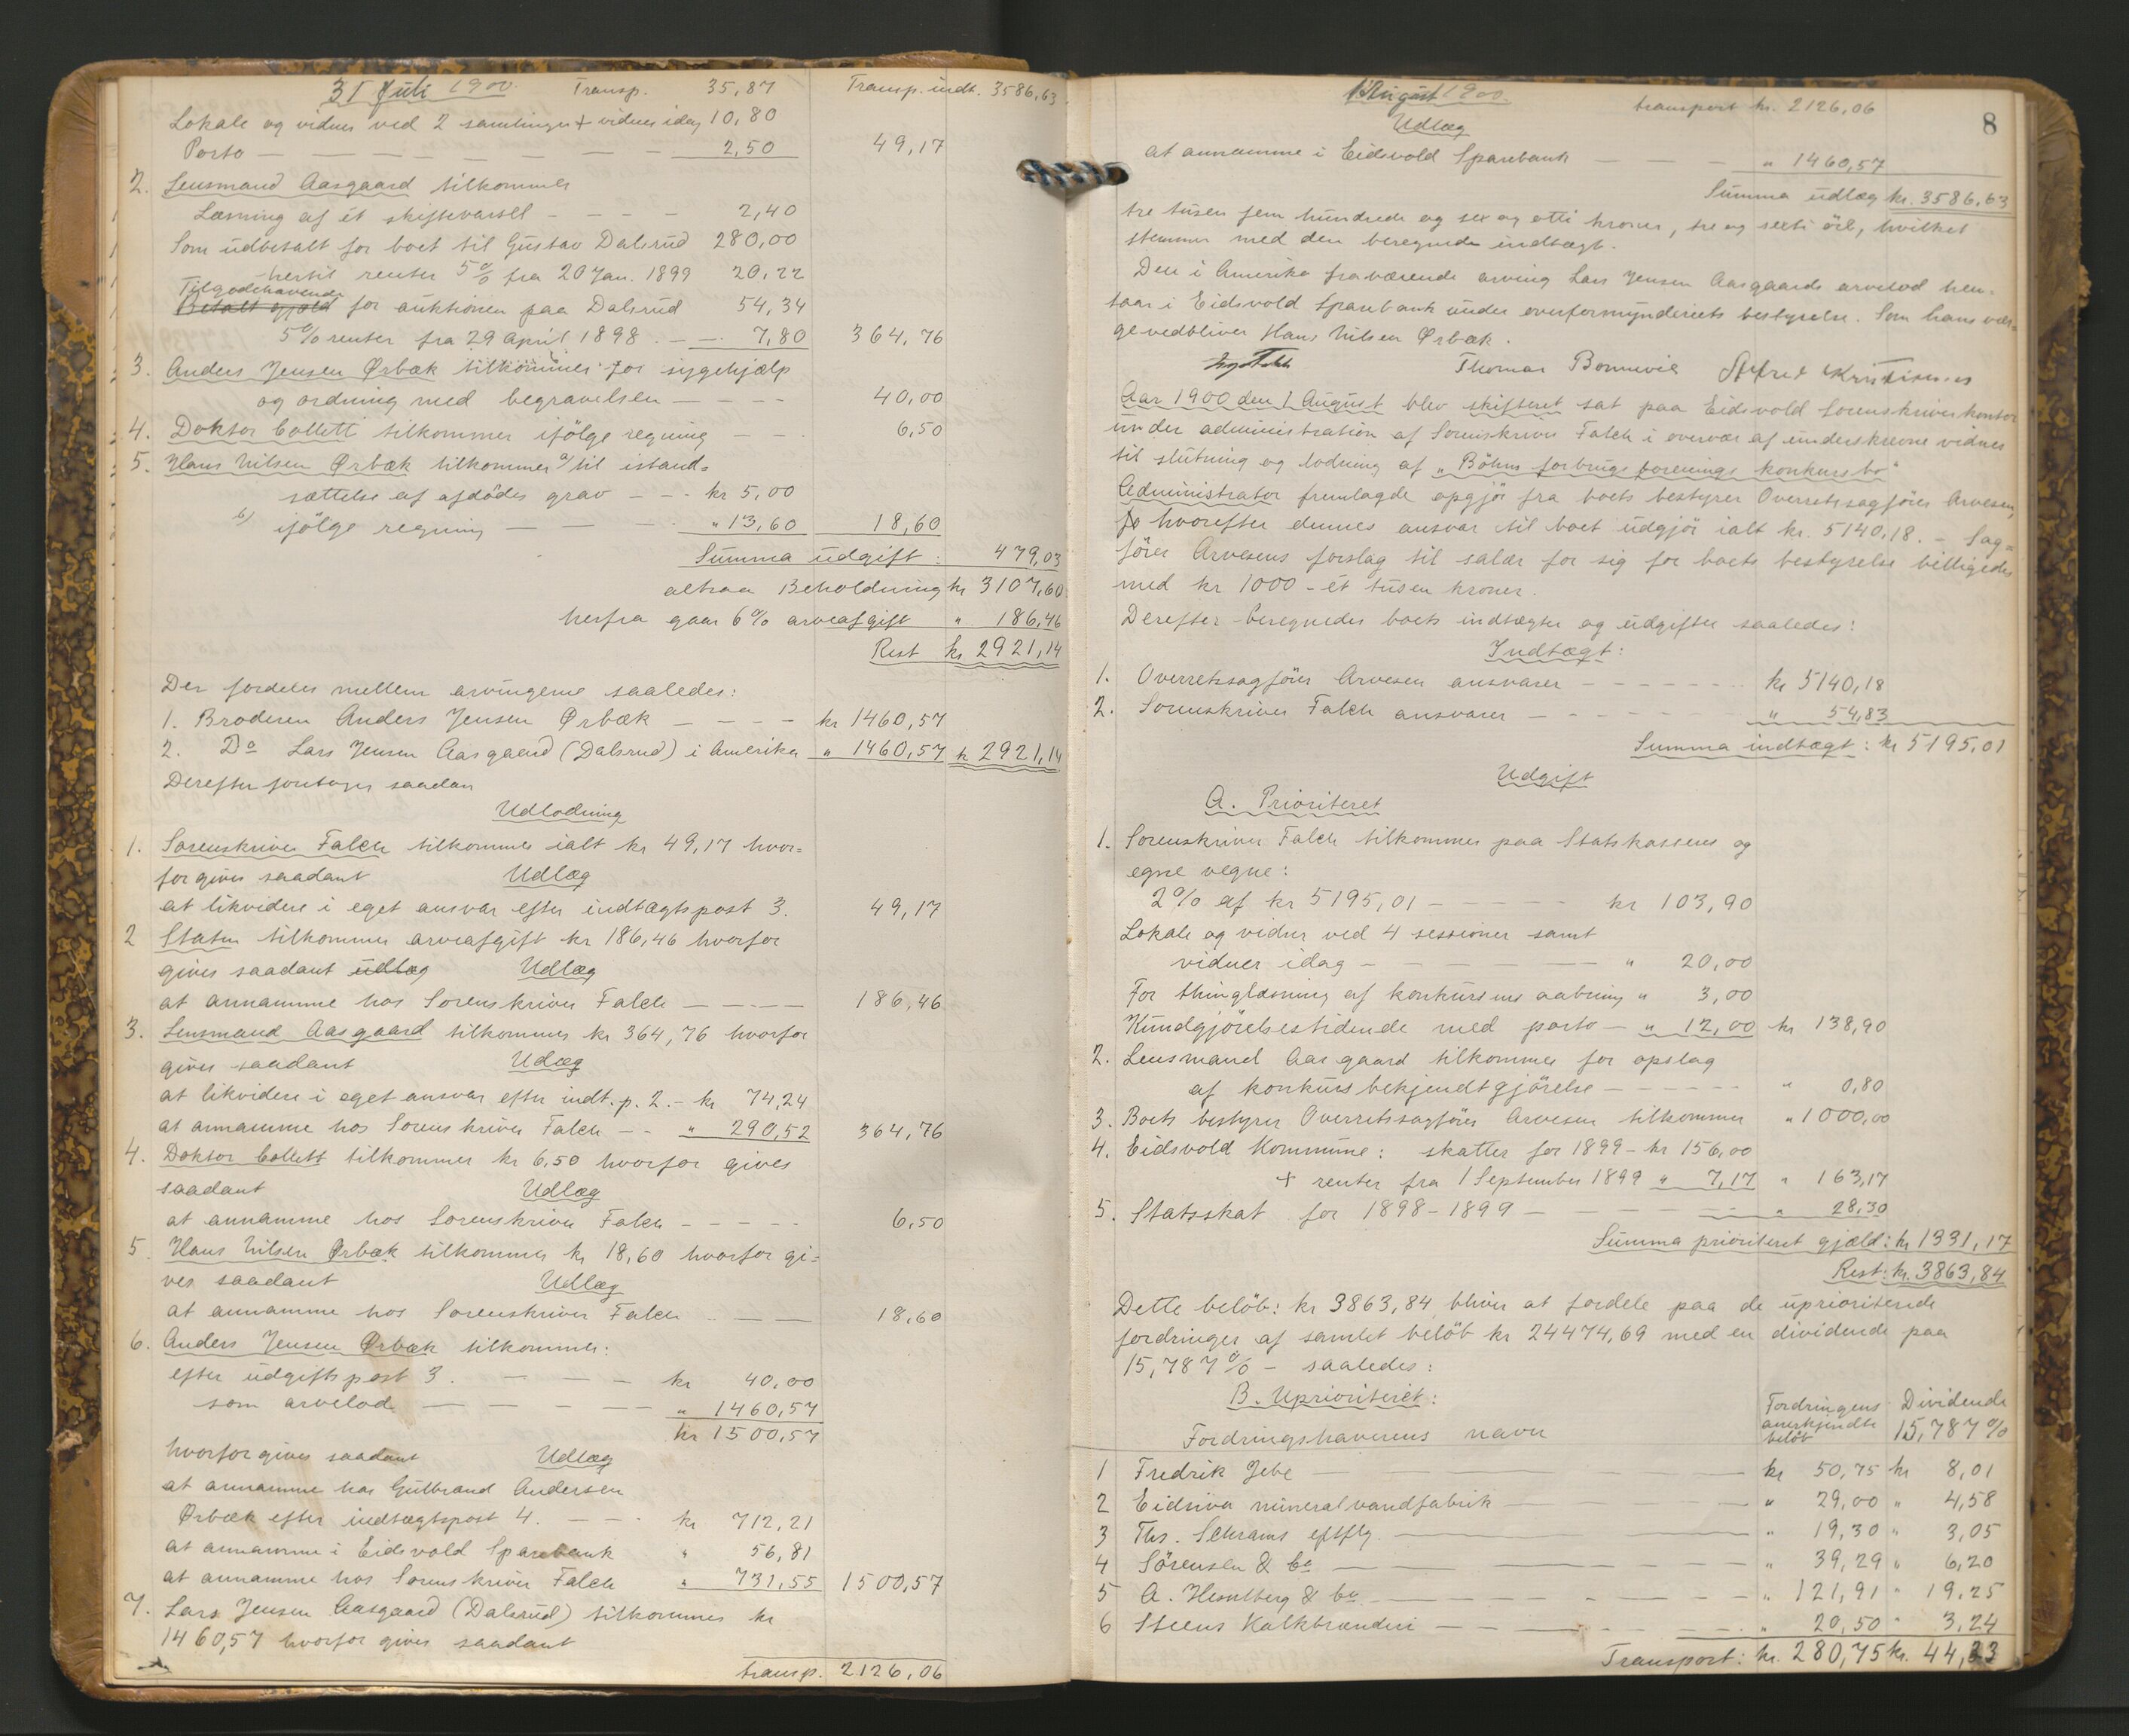 31 Juli 1900. Transp. 35,87 Transp. indt. 3586,63
Lokale og vidner ved 2 samlinger + vidner idag 10,80
Porto — — — — — — — 2,50 49,17
2. Lensmand Aasgaard tilkommer
Læsning af ét skiftevarsel — — — — 2,40
Som udbetalt for boet til Gustav Dalsrud 280,00
hertil renter 5% fra 20 Jan. 1899 20,22
Tilgodehavende
Betalt gjæld for auktionen paa Dalsrud 54,34
5% renter fra 29 April 1898 — — 7,80 364,76
3. Anders Jensen Ørbæk tilkommer for sygehjælp
og ordning med begravelsen — — — — 40,00
4. Doktor Collett tilkommer ifölge regning — — 6,50
5. Hans Nilsen Ørbæk tilkommer a/ til istand=
sættelse af afdödes grav — — - kr 5,00
b/ ifölge regning — — — - " 13,60 18,60
Summa udgift : 479,03
altsaa Beholdning kr 3107,60
herfra gaar 6% arveafgift " 186,46
Rest kr 2921,14
Der fordeles mellem arvingerne saaledes:
1. Broderen Anders Jensen Ørbæk — — — — kr 1460,57
2. Do Lars Jensen Aasgaard (Dalsrud) i Amerika " 1460,57 kr 2921,14
Derefter foretoges saadan
Udlodning
1. Sorenskriver Falch tilkommer ialt kr 49,17 hvor=
for gives saadant Udlæg
at likvidere i eget ansvar efter indtægtspost 3. 49,17
2 Staten tilkommer arveafgift kr 186,46 hvorfor
gives saadant udlæg Udlæg
at annamme hos Sorenskriver Falch — — — — 186,46
3. Lensmand Aasgaard tilkommer kr 364,76 hvorfor
gives saadant Udlæg
at likvidere i eget ansvar efter indt. p. 2. - kr 74,24
at annamme hos Sorenskriver Falch — - " 290,52 364,76
4. Doktor Collett tilkommer kr 6,50 hvorfor gives
saadant Udlæg
at annamme hos Sorenskriver Falch — — — — 6,50
5. Hans Nilsen Ørbæk tilkommer kr 18,60 hvorfor gi=
ves saadant Udlæg
at annamme hos Sorenskriver Falch — — — 18,60
6. Anders Jensen Ørbæk tilkommer:
efter udgiftspost 3. — — — — kr 40,00
som arvelod — — — — — " 1460,57
kr 1500,57
hvorfor gives saadant Udlæg
at annamme hos Gulbrand Andersen
Ørbæk efter indtægtspost 4. — — - kr 712,21
at annamme i Eidsvold Sparebank " 56,81
at annamme hos Sorenskriver Falch " 731,55 1500,57
7. Lars Jensen Aasgaard (Dalsrud) tilkommer kr
1460,57 hvorfor gives saadant
transp. 2126,06
1 August 1900. transport kr. 2126,06 8
Udlæg
at annamme i Eidsvold Sparebank — — — " 1460,57
Summa udlæg kr. 3586,63
tre tusen fem hundrede og sex og otti kroner, tre og sexti öre, hvilket
stemmer med den beregnede indtægt.
Den i Amerika fraværende arving Lars Jensen Aasgaards arvelod hen=
staar i Eidsvold Sparebank under overformynderiets bestyrelse. Som hans vær=
ge vedbliver Hans Nilsen Ørbæk.
Thomas Bonnevie Alfred Kristiansen
Aar 1900 den 1 August blev skifteret sat paa Eidsvold Sorenskriverkontor
under administration af Sorenskriver Falch i overvær af underskrevne vidner
til slutning og lodning af „Böhns forbrugsforenings konkursbo"
Administrator fremlagde opgjör fra boets bestyrer Overretssagförer Arvesen,
hvorefter dennes ansvar til boet udgjör ialt kr. 5140,18. - Sag=
förer Arvesens forslag til salær for sig for boets bestyrelse billigedes
med kr 1000 - ét tusen kroner.
Derefter beregnedes boets indtægter og udgifter saaledes:
Indtægt:
1. Overretssagförer Arvesen ansvarer — — — — — kr 5140,18
2. Sorenskriver Falch ansvarer — — — — — " 54,83
Summa indtægt : kr 5195,01
Udgift
A. Prioriteret
1. Sorenskriver Falch tilkommer paa Statskassens og
egne vegne:
2% af kr 5195,01 — — — — — kr 103,90
Lokale og vidner ved 4 sessioner samt
vidner idag — — — — — — " 20,00
For thinglæsning af konkursens aabning " 3,00
Kundgjörelsestidende med porto — " 12,00 kr 138,90
2. Lensmand Aasgaard tilkommer for opslag
af konkursbekjendtgjörelse — — — — — " 0,80
3. Boets bestyrer Overretssagförer Arvesen tilkommer " 1000,00
4. Eidsvold Kommune: skatter for 1899 - kr 156,00
+ renter fra 1 September 1899 " 7,17 " 163,17
5. Statsskat for 1898-1899 — — — — — " 28,30
Summa prioriteret gjæld: kr 1331,17
Rest: kr. 3863,84
Dette belöb: kr 3863,84 bliver at fordele paa de uprioriterede
fordringer af samlet belöb kr 24474,69 med en dividende paa
15,787% - saaledes:
B. Uprioriteret:
Fordringshaverens navn Fordringens anerkjendte belöb Dividende 15,787%
1 Fredrik Jebe — — — — kr 50,75 kr 8,01
2 Eidsiva mineralvandfabrik — — — " 29,00 " 4,58
3 Ths. Schrams eftflg. — — — " 19,30 " 3,05
4 Sörensen & Co — — — — " 39,29 " 6,20
5 A. Hesselberg & Co. — — — — " 121,91 " 19,25
6 Steens Kalkbrænderi — — — — " 20,50 " 3,24
Transport: kr. 280,75 kr. 44,33